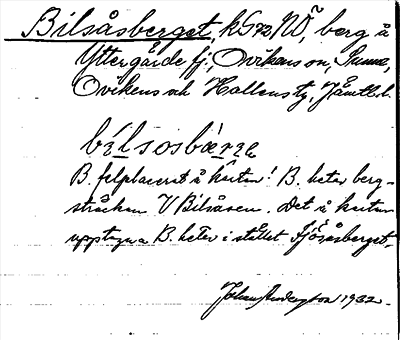 Bilsåsberget, kG72NÖ, berg å
Yttergärde fj, Ovikens sn,
Ovikens och Hallens tg, Jämtl. l.
bílsosbärjε
B. felplacerat å kartan! B. heter berg-
sträckan V Bilsåsen. Det å kartan
upptagna B. heter i stället Fjösåsberget.
Johan Andersson 1932